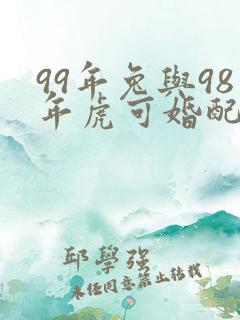 99年兔與98
年虎可婚配
邱學強
未經同意禁止轉載